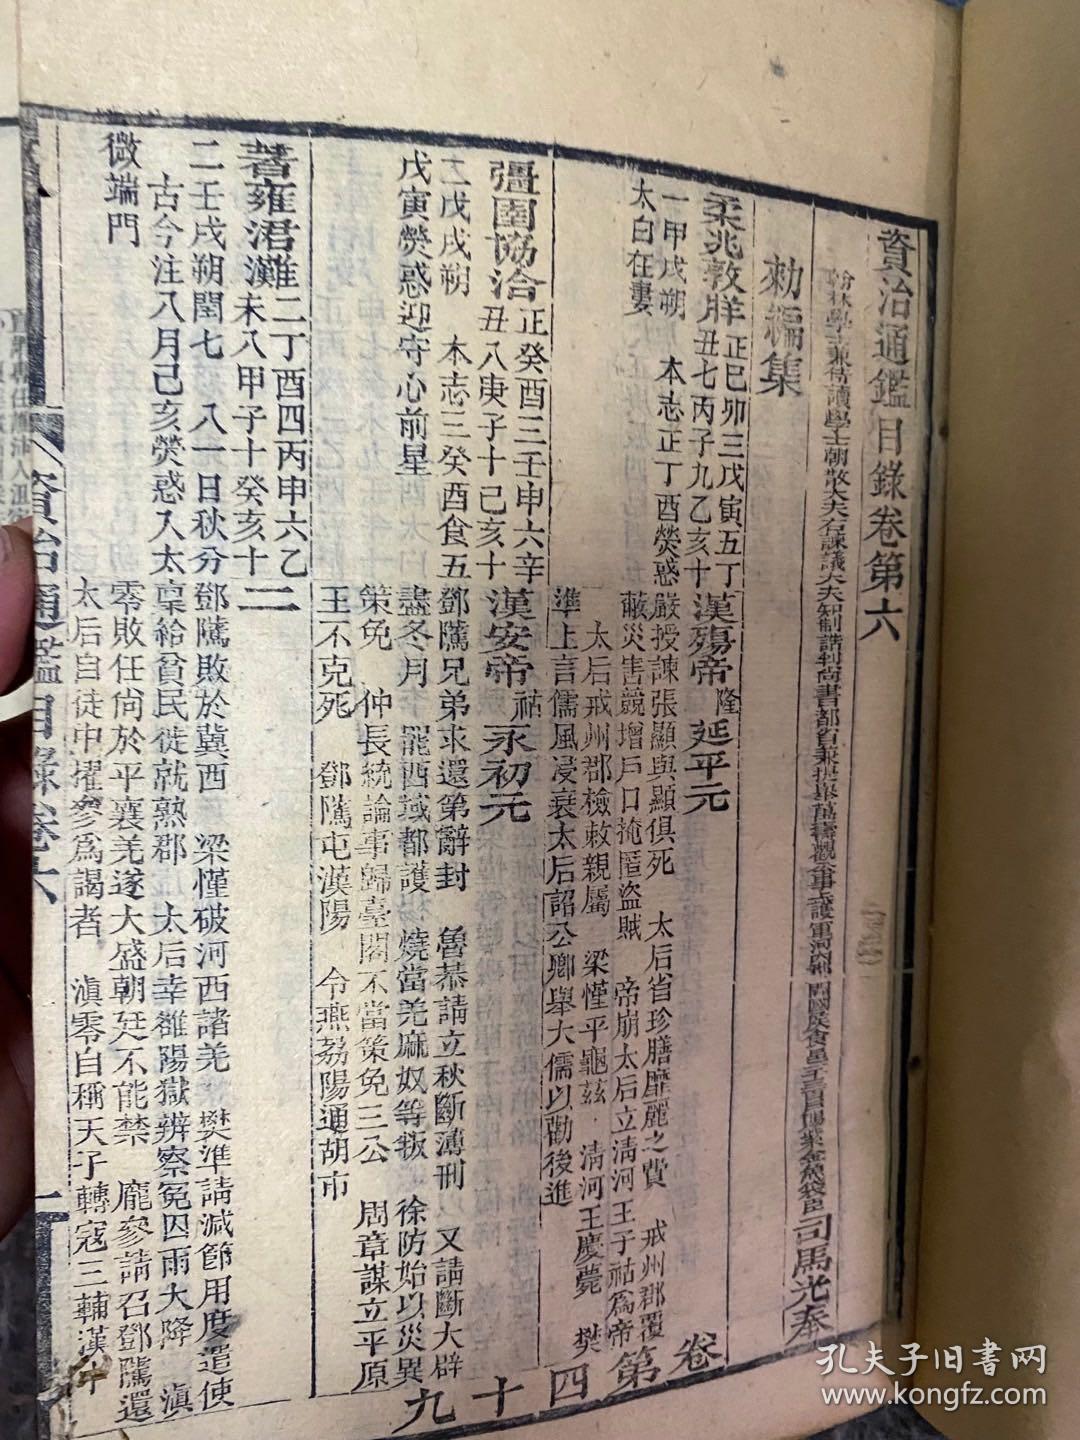 資治通鑑目錄卷第六
翰林學士兼侍讀學士朝散大夫右諫議大夫知制誥判尚書都省兼提舉萬壽觀公事
司馬光奉
勑編集
柔兆敦牂
正己卯三戊寅五丁
丑七丙子九乙亥十
一甲戌朔
本志正丁酉熒惑
太白在婁
漢殤帝隆延平元
嚴授諫張顯與顯俱死 太后省珍膳靡麗之費 戒州郡覆
蔽災害競增戶口掩匿盜賊 帝崩太后立清河王子祜為帝
太后戒州郡檢敕親屬 梁慬平龜茲 清河王慶薨 樊
準上言儒風浸衰太后詔公卿舉大儒以勸後進
彊圉協洽
正癸酉三壬申六辛
丑八庚子十己亥十
二戊戌朔
本志三癸酉食五
戊寅熒惑迎守心前星
漢安帝祜永初元
鄧騭兄弟求還第辭封 魯恭請立秋斷薄刑 又請斷大辟
盡冬月 罷西域都護 燒當羌麻奴等叛 徐防始以災異
策免 仲長統論事歸臺閣不當策免三公 周章謀立平原
王不克死 鄧騭屯漢陽 令燕荔陽通胡市
著雍涒灘
二丁酉四丙申六乙
未八甲子十癸亥十
二壬戌朔閏七 八一日秋分
古今注八月己亥熒惑入太
微端門
二
鄧騭敗於冀西 梁慬破河西諸羌 樊準請減節用度遣使
稟給貧民徙就熟郡 太后幸雒陽獄辨察冤囚雨大降 滇
零敗任尚於平襄羌遂大盛朝廷不能禁 龐參請召鄧騭還
太后自徒中擢參為謁者 滇零自稱天子轉寇三輔漢中
資治通鑑目錄卷六
一
卷第四十九
孔夫子旧書网
www.kongfz.com